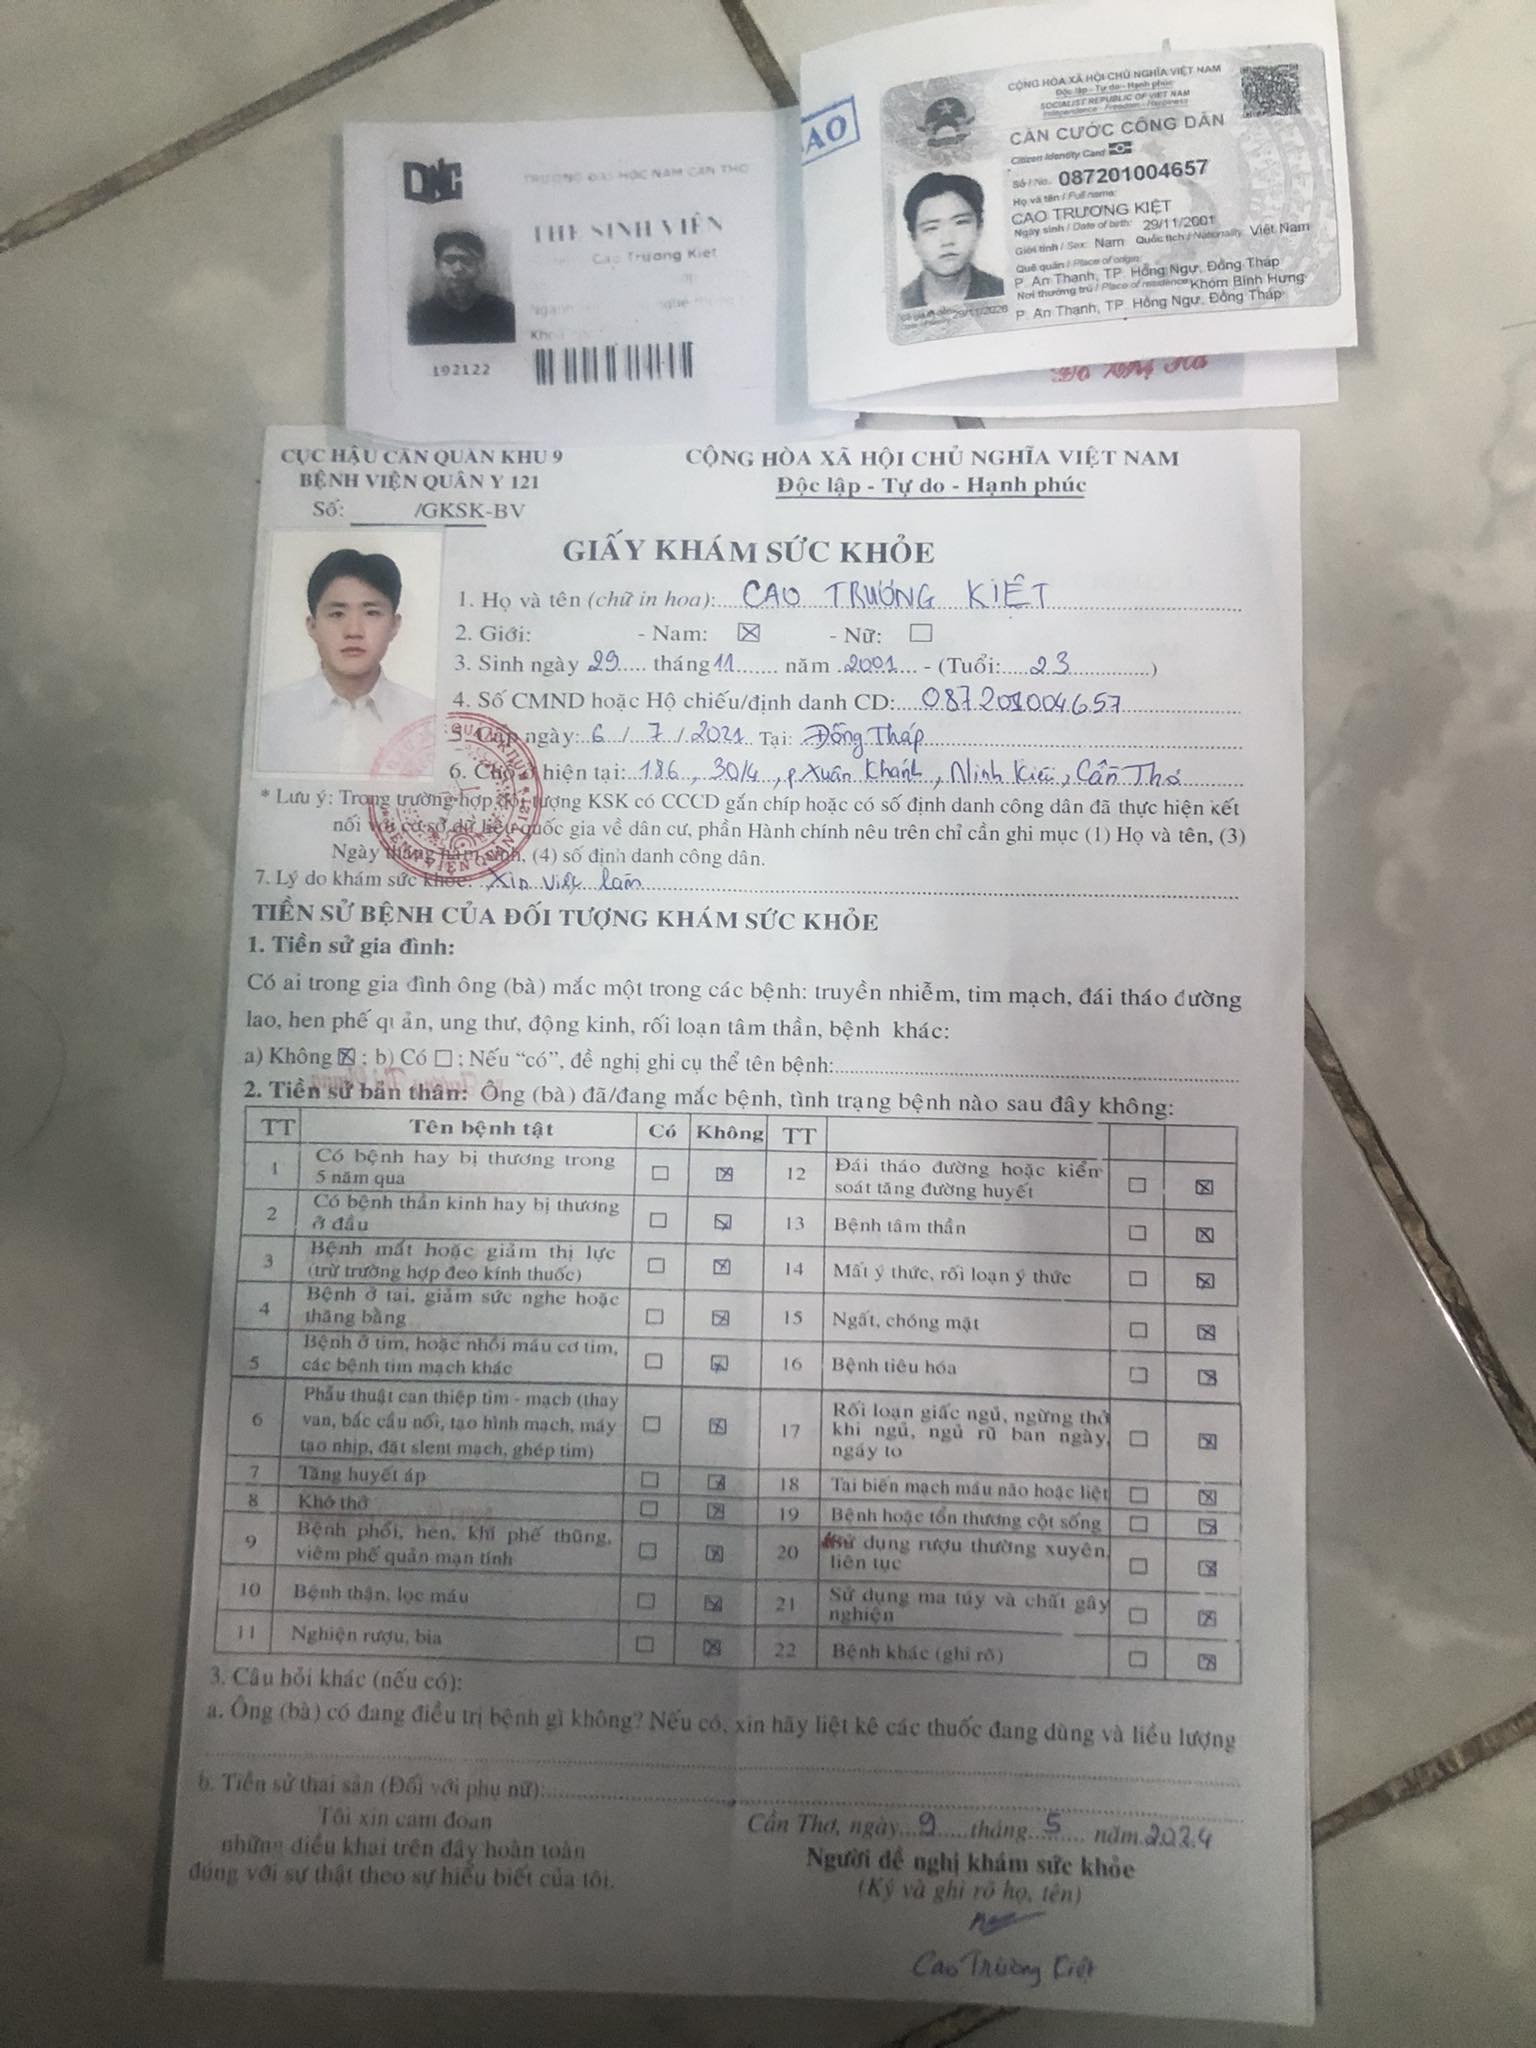 DNC
TRƯỜNG ĐẠI HỌC NAM CẦN THƠ
THẺ SINH VIÊN
Cao Trương Kiệt
Ngành
Khóa
192122
SAO
CỘNG HÒA XÃ HỘI CHỦ NGHĨA VIỆT NAM
Độc lập - Tự do - Hạnh phúc
SOCIALIST REPUBLIC OF VIET NAM
Independence - Freedom - Happiness
CĂN CƯỚC CÔNG DÂN
Citizen Identity Card
Số / No.: 087201004657
Họ và tên / Full name:
CAO TRƯƠNG KIỆT
Ngày sinh / Date of birth: 29/11/2001
Giới tính / Sex: Nam Quốc tịch / Nationality: Việt Nam
Quê quán / Place of origin:
P. An Thạnh, TP. Hồng Ngự, Đồng Tháp
Nơi thường trú / Place of residence: Khóm Bình Hưng
P. An Thạnh, TP. Hồng Ngự, Đồng Tháp
29/11/2026
CỤC HẬU CẦN QUÂN KHU 9
BỆNH VIỆN QUÂN Y 121
Số: /GKSK-BV
CỘNG HÒA XÃ HỘI CHỦ NGHĨA VIỆT NAM
Độc lập - Tự do - Hạnh phúc
GIẤY KHÁM SỨC KHỎE
1. Họ và tên (chữ in hoa): CAO TRƯƠNG KIỆT
2. Giới: - Nam: ☒ - Nữ: ☐
3. Sinh ngày 29 tháng 11 năm 2001 - (Tuổi: 23)
4. Số CMND hoặc Hộ chiếu/định danh CD: 087201004657
5. Cấp ngày: 6 / 7 / 2021 Tại: Đồng Tháp
6. Chỗ ở hiện tại: 186, 30/4, p. Xuân Khánh, Ninh Kiều, Cần Thơ
* Lưu ý: Trong trường hợp đối tượng KSK có CCCD gắn chíp hoặc có số định danh công dân đã thực hiện kết
nối với cơ sở dữ liệu quốc gia về dân cư, phần Hành chính nêu trên chỉ cần ghi mục (1) Họ và tên, (3)
Ngày tháng năm sinh, (4) số định danh công dân.
7. Lý do khám sức khỏe: Xin việc làm
TIỀN SỬ BỆNH CỦA ĐỐI TƯỢNG KHÁM SỨC KHỎE
1. Tiền sử gia đình:
Có ai trong gia đình ông (bà) mắc một trong các bệnh: truyền nhiễm, tim mạch, đái tháo đường
lao, hen phế quản, ung thư, động kinh, rối loạn tâm thần, bệnh khác:
a) Không ☒ ; b) Có ☐ ; Nếu “có”, đề nghị ghi cụ thể tên bệnh:
2. Tiền sử bản thân: Ông (bà) đã/đang mắc bệnh, tình trạng bệnh nào sau đây không:
TT Tên bệnh tật Có Không TT
1 Có bệnh hay bị thương trong 5 năm qua ☐ ☒
12 Đái tháo đường hoặc kiểm soát tăng đường huyết ☐ ☒
2 Có bệnh thần kinh hay bị thương ở đầu ☐ ☒
13 Bệnh tâm thần ☐ ☒
3 Bệnh mắt hoặc giảm thị lực (trừ trường hợp đeo kính thuốc) ☐ ☒
14 Mất ý thức, rối loạn ý thức ☐ ☒
4 Bệnh ở tai, giảm sức nghe hoặc thăng bằng ☐ ☒
15 Ngất, chóng mặt ☐ ☒
5 Bệnh ở tim, hoặc nhồi máu cơ tim, các bệnh tim mạch khác ☐ ☒
16 Bệnh tiêu hóa ☐ ☒
6 Phẫu thuật can thiệp tim - mạch (thay van, bắc cầu nối, tạo hình mạch, máy tạo nhịp, đặt slent mạch, ghép tim) ☐ ☒
17 Rối loạn giấc ngủ, ngừng thở khi ngủ, ngủ rũ ban ngày, ngáy to ☐ ☒
7 Tăng huyết áp ☐ ☒
18 Tai biến mạch máu não hoặc liệt ☐ ☒
8 Khó thở ☐ ☒
19 Bệnh hoặc tổn thương cột sống ☐ ☒
9 Bệnh phổi, hen, khí phế thũng, viêm phế quản mạn tính ☐ ☒
20 Sử dụng rượu thường xuyên, liên tục ☐ ☒
10 Bệnh thận, lọc máu ☐ ☒
21 Sử dụng ma túy và chất gây nghiện ☐ ☒
11 Nghiện rượu, bia ☐ ☒
22 Bệnh khác (ghi rõ) ☐ ☒
3. Câu hỏi khác (nếu có):
a. Ông (bà) có đang điều trị bệnh gì không? Nếu có, xin hãy liệt kê các thuốc đang dùng và liều lượng
b. Tiền sử thai sản (Đối với phụ nữ):
Tôi xin cam đoan
những điều khai trên đây hoàn toàn
đúng với sự thật theo sự hiểu biết của tôi.
Cần Thơ, ngày 9 tháng 5 năm 2024
Người đề nghị khám sức khỏe
(Ký và ghi rõ họ, tên)
Cao Trương Kiệt